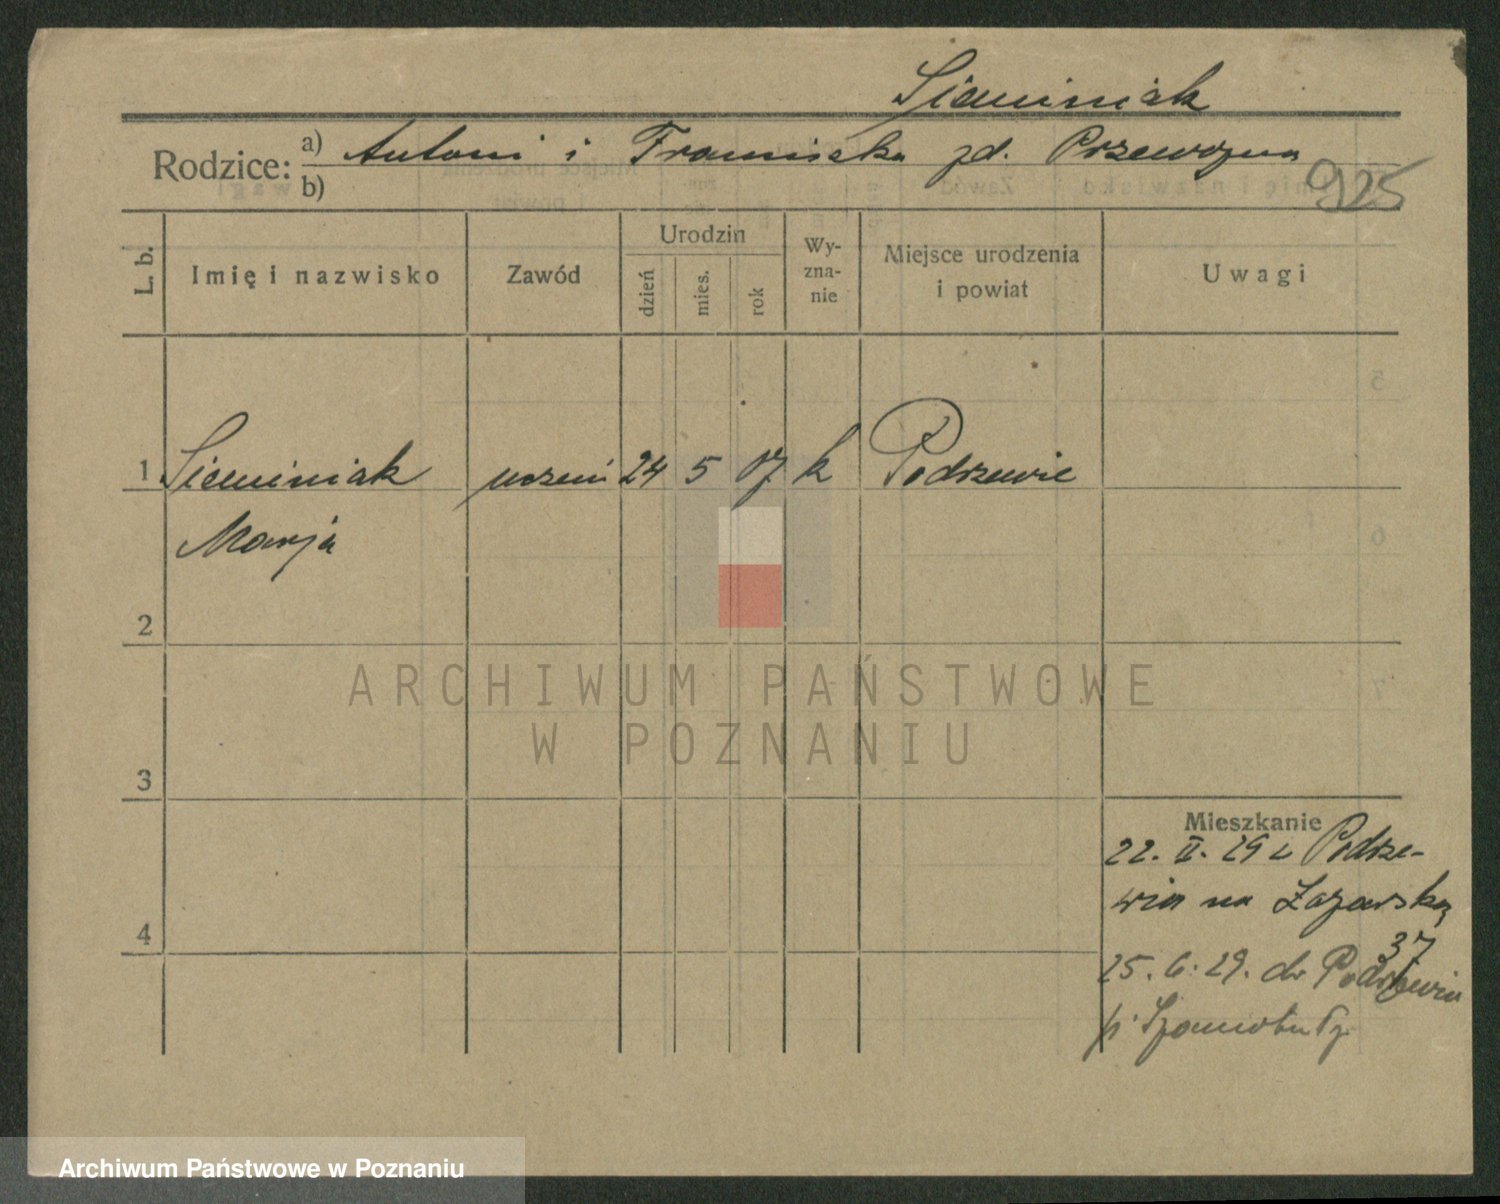 Sieminiak
Rodzice: a) Antoni i Franciszka zd. Przewozna
b)
925
L. b.
Imię i nazwisko
Zawód
Urodzin
dzień
mies.
rok
Wy-
zna-
nie
Miejsce urodzenia
i powiat
Uwagi
1 Sieminiak uczeń 24 5 07 k Podrzewie
Marja
2
ARCHIWUM PAŃSTWOWE
W POZNANIU
3
Mieszkanie
22. II. 29 z Podrze-
wia na Łazarską
4
37
25. 6. 29. do Podrzewia
p. Szamotuły
Archiwum Państwowe w Poznaniu